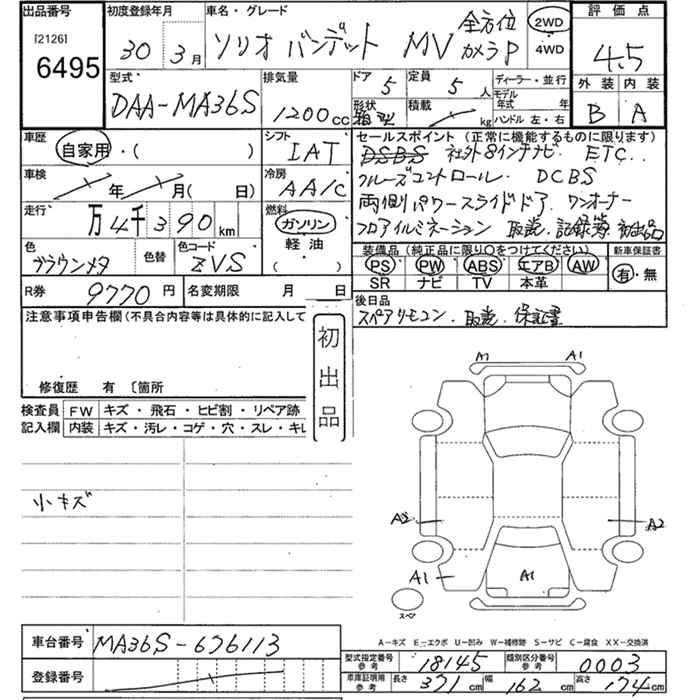 出品番号
[2126]
6495
初度登録年月
30年 3月
車名・グレード
ソリオ バンデット MV 全方位カメラP
2WD
4WD
評価点
4.5
外装 内装
B A
型式
DAA-MA36S
排気量
1200cc
ドア 5
定員 5人
形状 箱型
積載 kg
ディーラー・並行
モデル年式 年
ハンドル 左・右
車歴
自家用・( )
シフト
IAT
車検
年 月( 日)
冷房
AA/C
走行
万4千390km
燃料
ガソリン
軽油
( )
色
ブラウンメタ
色替
色コード
ZVS
R券 9770円
名変期限 月 日
セールスポイント (正常に機能するものに限ります)
DSBS 社外8インチナビ. ETC..
クルーズコントロール. DCBS
両側パワースライドドア. ワンオーナー
フロアイルミネーション 取説. 記録簿. 初出品
装備品(純正品に限り○をつけてください)
PS PW ABS エアB AW
SR ナビ TV 本革
新車保証書
有・無
後日品
スペアリモコン. 取説. 保証書
注意事項申告欄(不具合内容等は具体的に記入して
修復歴 有 〔箇所
初出品
検査員記入欄
FW キズ・飛石・ヒビ割・リペア跡
内装 キズ・汚レ・コゲ・穴・スレ・キレ
小キズ
A1 A1
A2 A2
A1 A1
スペア
A―キズ E―エクボ U―凹み W―補修跡 S―サビ C―腐食 XX―交換済
車台番号 MA36S-676113
登録番号
型式指定番号 参考 18145
類別区分番号 参考 0003
車庫証明用 参考
長さ 371cm 幅 162cm 高さ 174cm